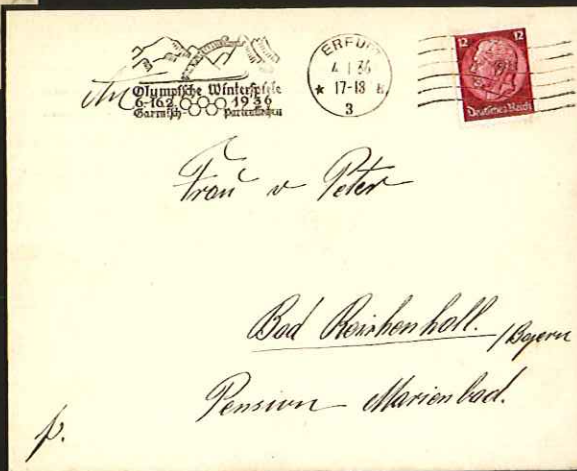 An
Olympische Winterspiele
6.-16.2. 1936
Garmisch- Partenkirchen
ERFURT
4.1.36
* 17-18
3
12 12
Deutsches Reich
Frau v Peter
Bad Reichenhall. / Bayern
Pension Marienbad.
p.